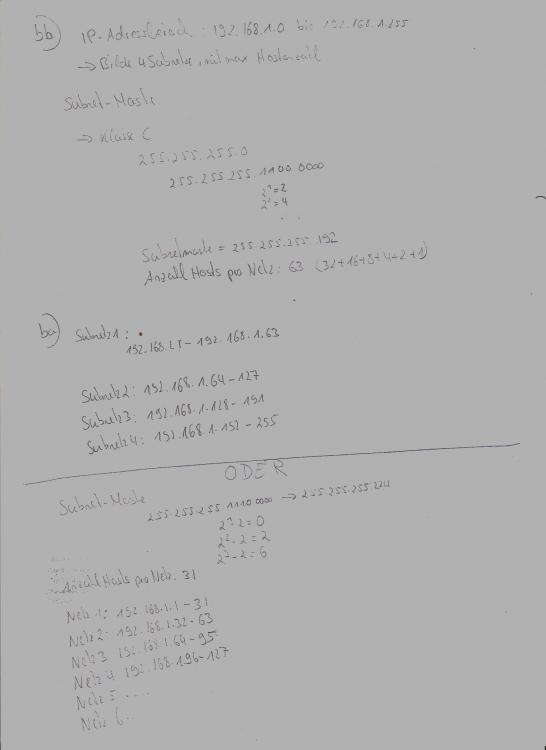 bb) IP-Adressbereich : 192.168.1.0 bis 192.168.1.255
→ Bilde 4 Subnetze, mit max Hostanzahl
Subnet-Maske
→ Klasse C
255.255.255.0
255.255.255.1100.0000
2¹=2
2²=4
Subnetmaske = 255.255.255.192
Anzahl Hosts pro Netz: 63 (32+16+8+4+2+1)
ba) Subnetz1 :
192.168.1.1 - 192.168.1.63
Subnetz2: 192.168.1.64-127
Subnetz3: 192.168.1.128-191
Subnetz4: 192.168.1.192-255
ODER
Subnet-Maske
255.255.255.1110.0000 → 255.255.255.224
2¹-2=0
2²-2=2
2³-2=6
Anzahl Hosts pro Netz: 31
Netz 1: 192.168.1.1-31
Netz 2: 192.168.1.32-63
Netz 3 192.168.1.64-95
Netz 4 192.168.196-127
Netz 5 ....
Netz 6...